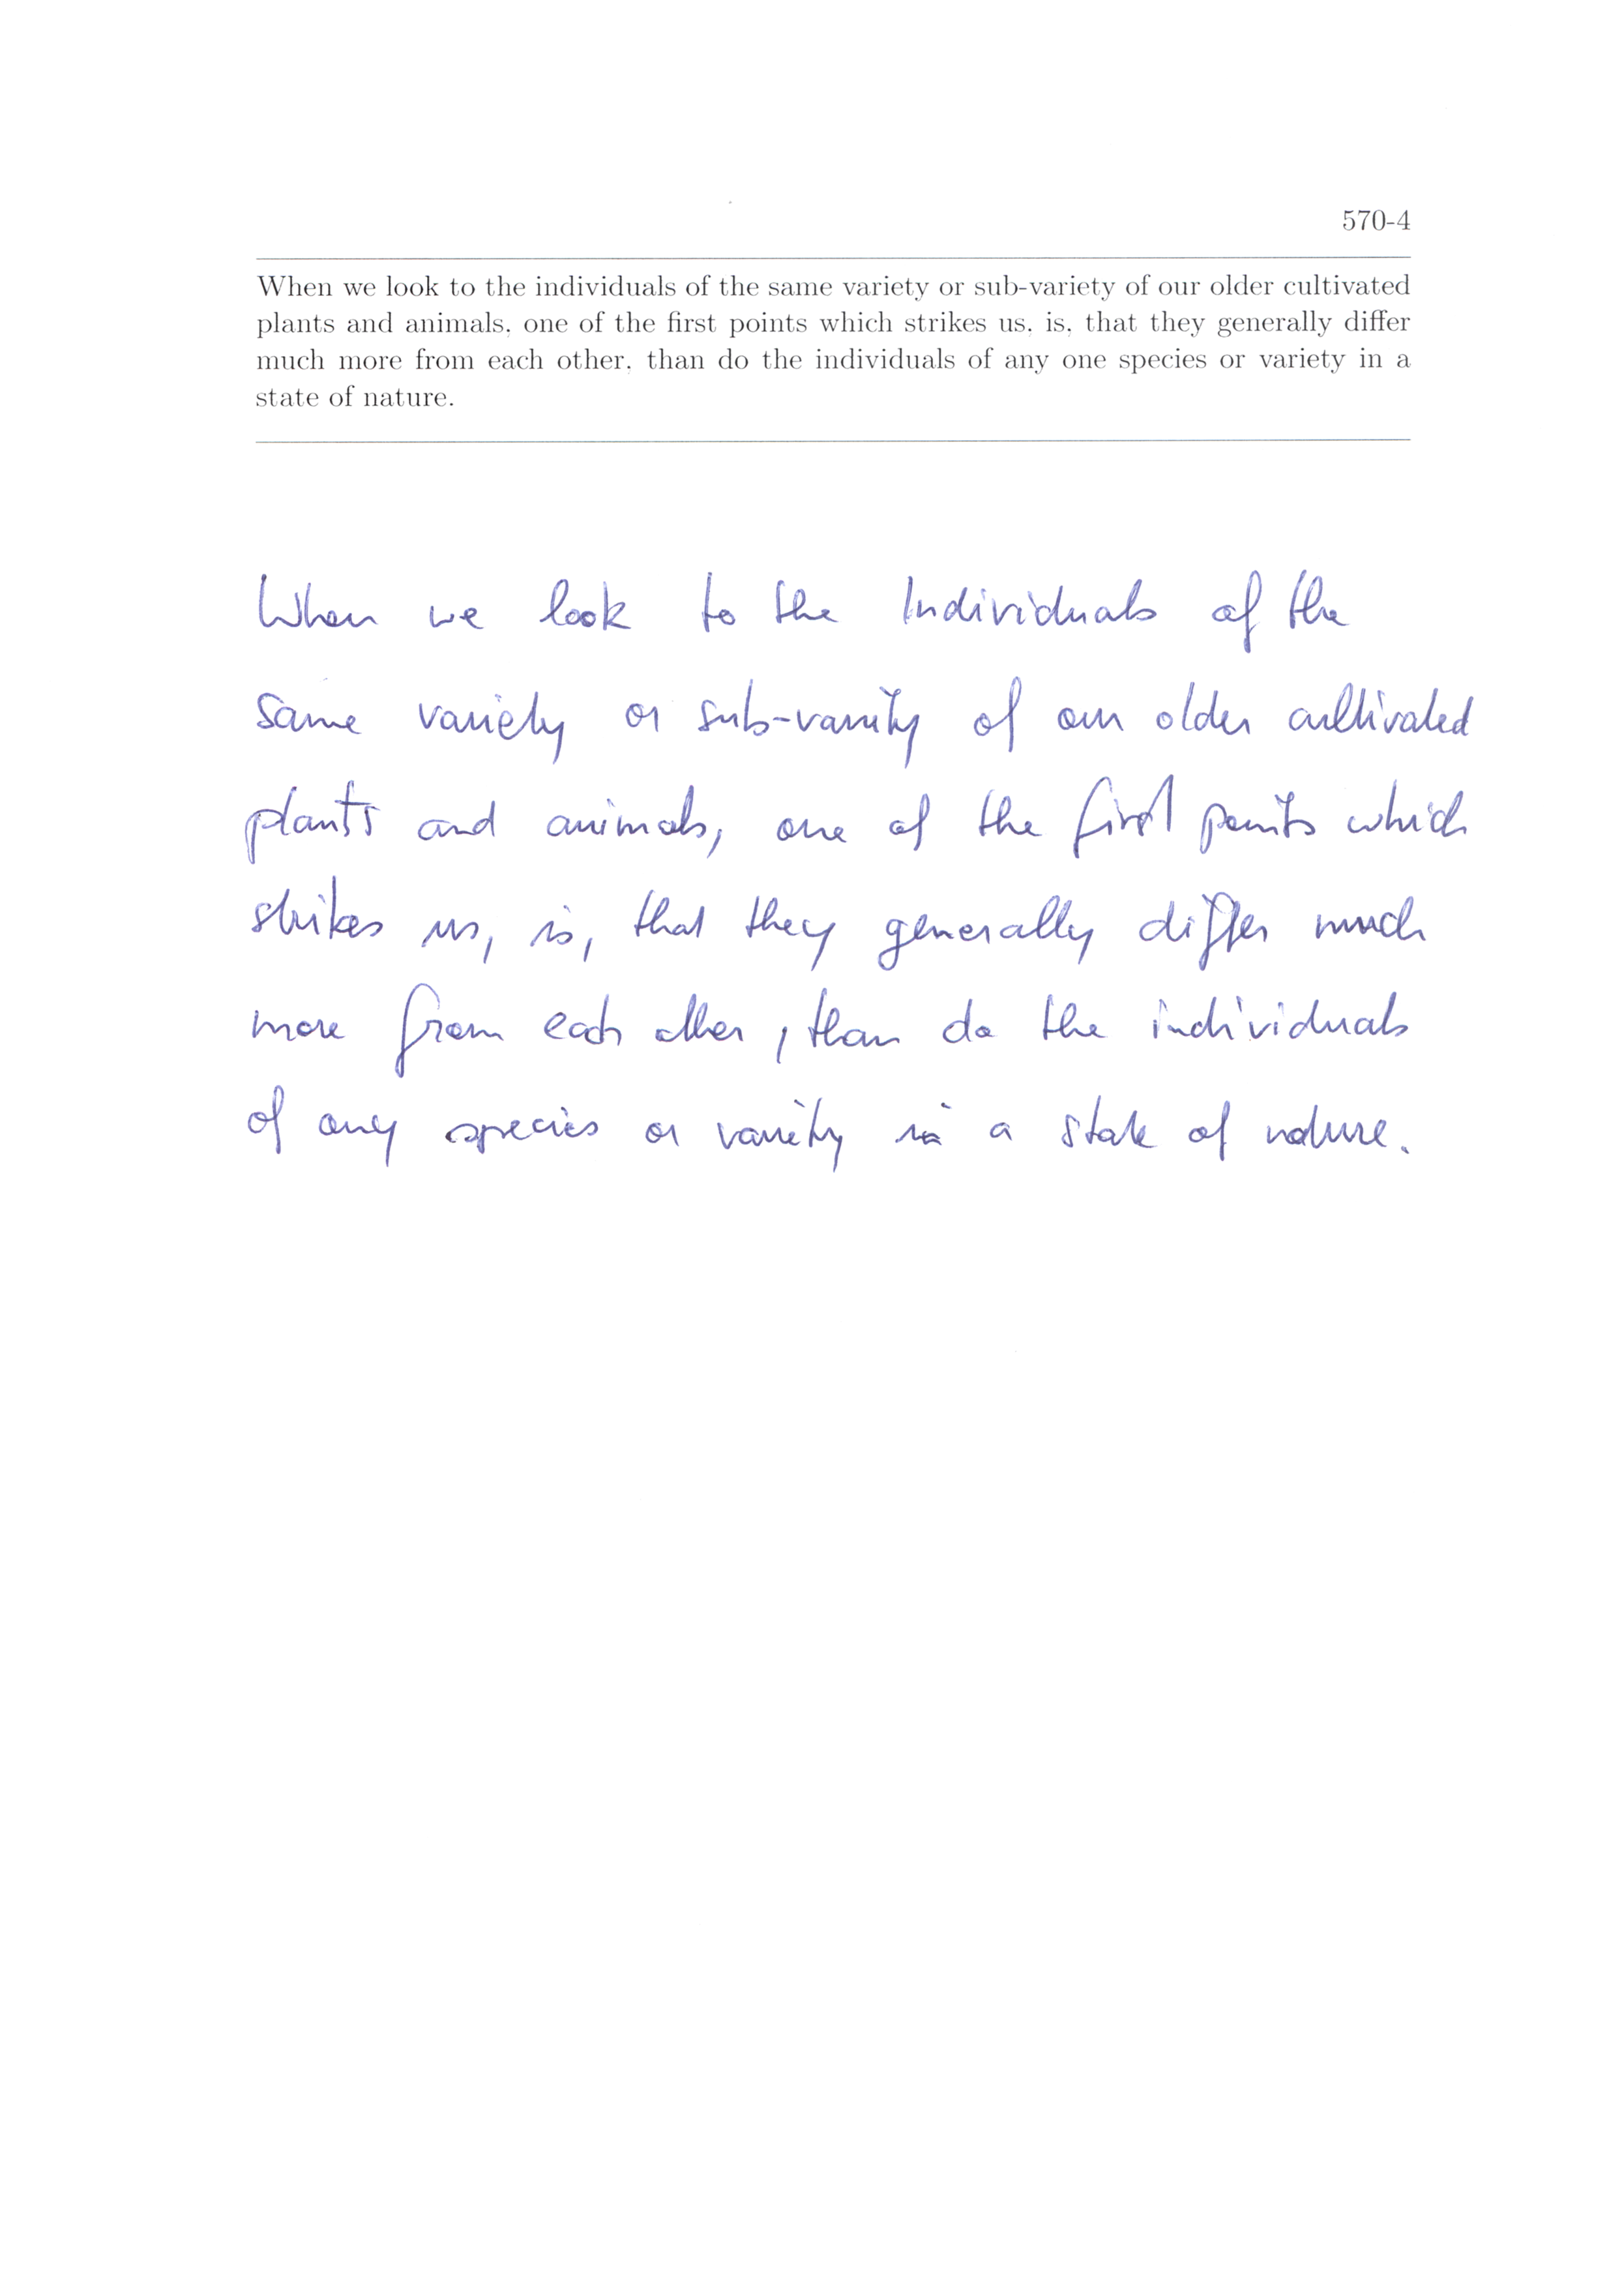 570-4
When we look to the individuals of the same variety or sub-variety of our older cultivated
plants and animals, one of the first points which strikes us, is, that they generally differ
much more from each other, than do the individuals of any one species or variety in a
state of nature.
When we look to the Individuals of the
same variety or sub-variety of our older cultivated
plants and animals, one of the first points which
strikes us, is, that they generally differ much
more from each other, than do the individuals
of any species or variety in a state of nature.